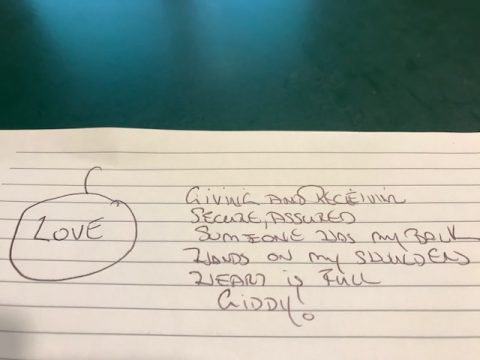 LOVE
GIVING AND RECEIVIN
SECURE, ASSURED
SOMEONE HAS MY BACK
HANDS ON MY SHOULDERS
HEART IS FULL
GIDDY!